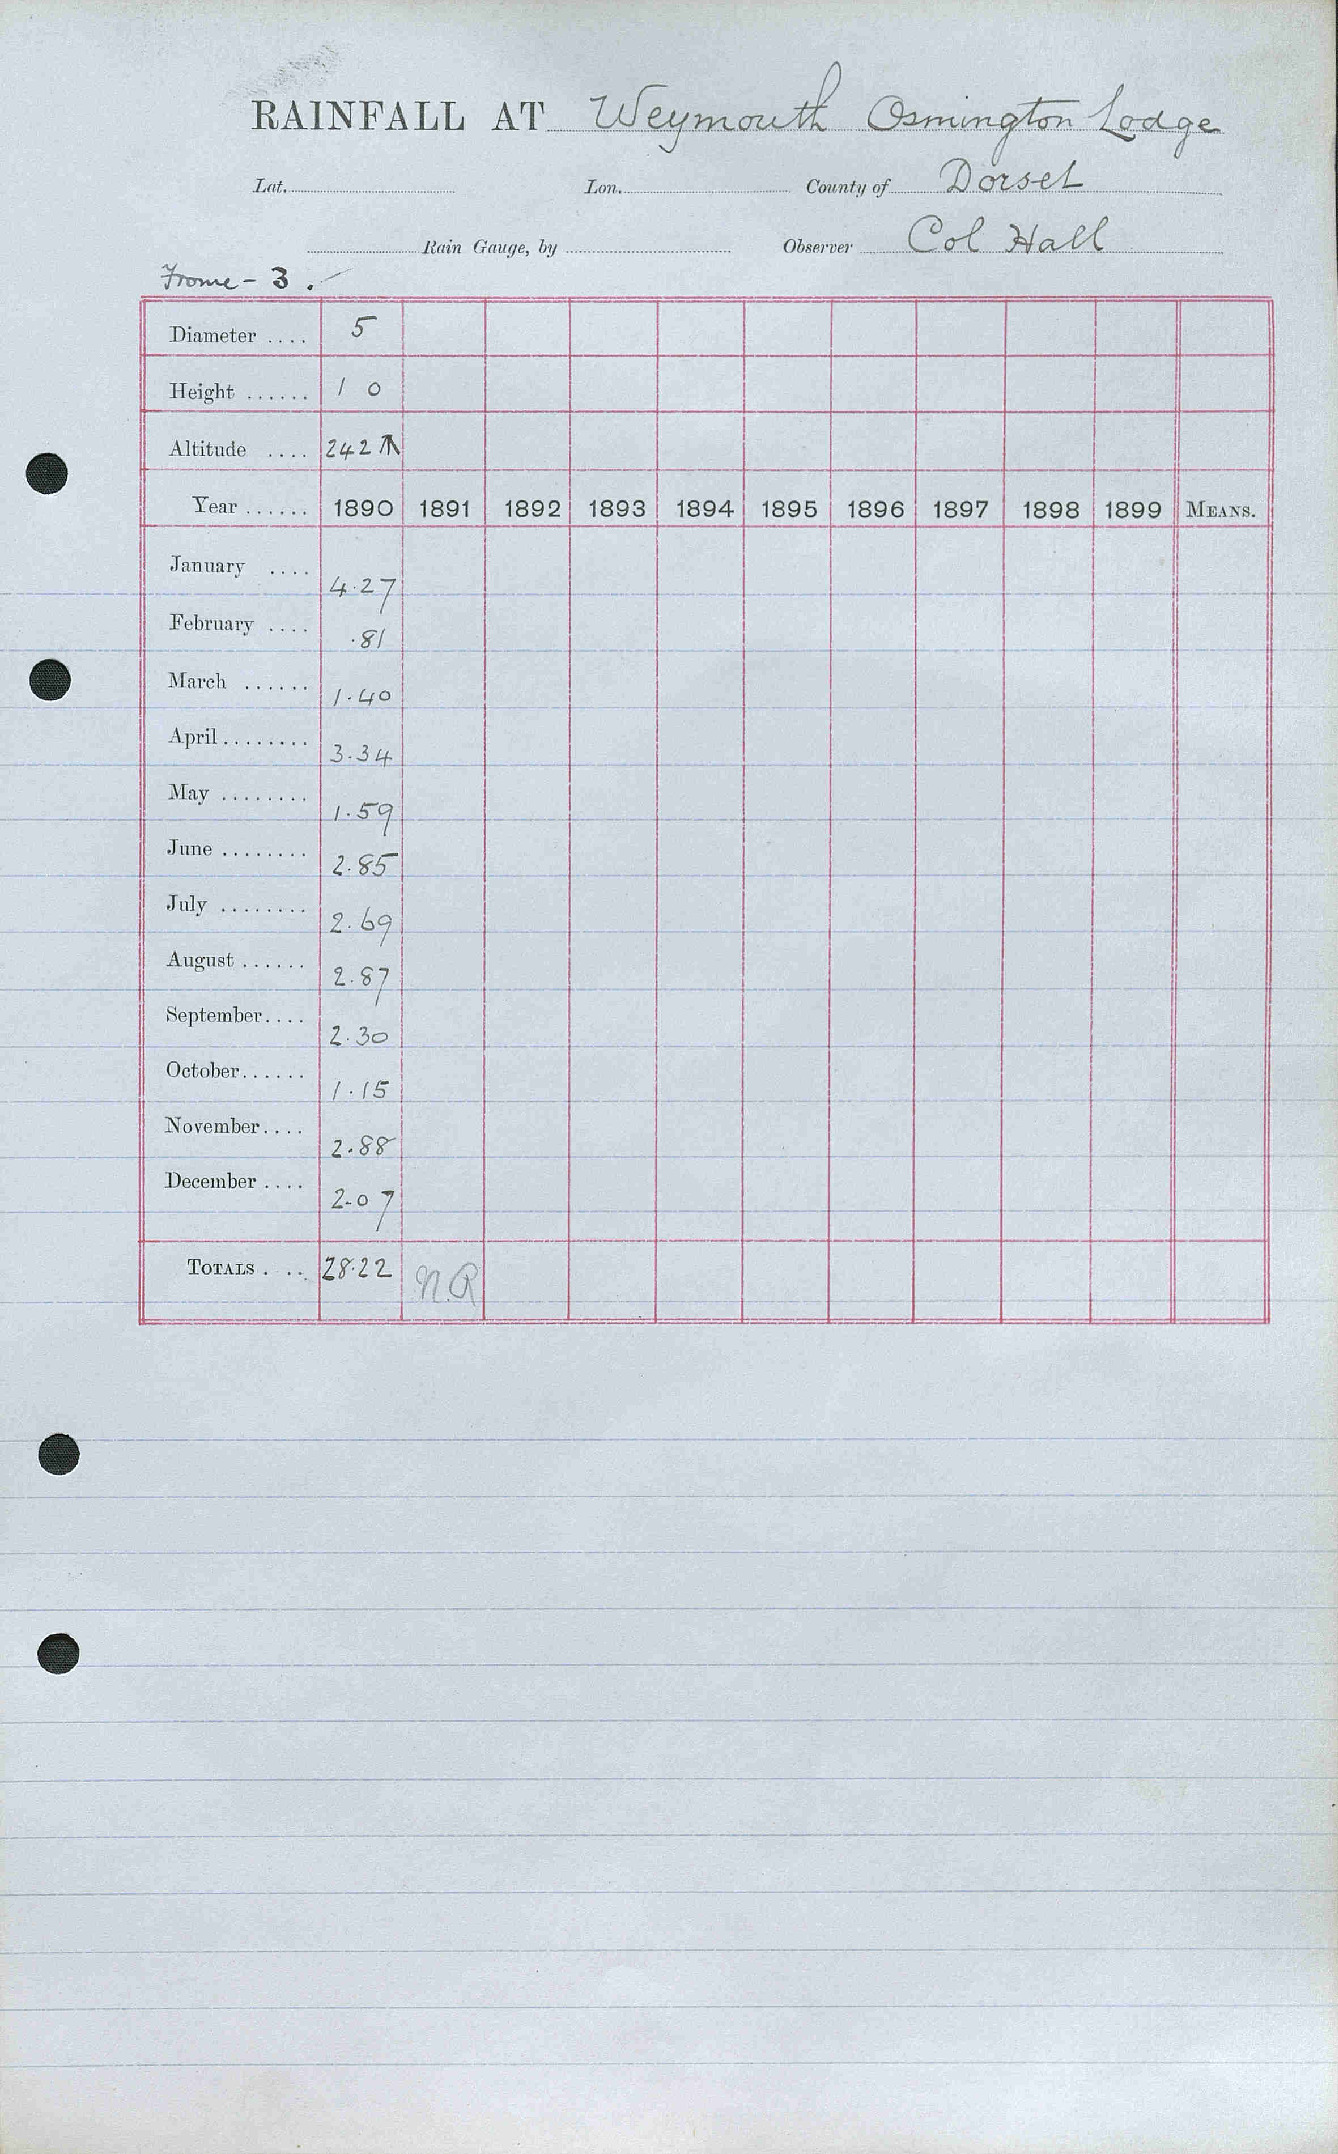 RAINFALL AT Weymouth Osmington Lodge
Lat. Lon. County of Dorset
Rain Gauge, by Observer Col Hall
Frome - 3.
Diameter .... 5
Height ...... 1 0
Altitude .... 242 ↑
Year ...... 1890 1891 1892 1893 1894 1895 1896 1897 1898 1899 MEANS.
January .... 4.27
February .... .81
March ...... 1.40
April ........ 3.34
May ........ 1.59
June ........ 2.85
July ........ 2.69
August ...... 2.87
September.... 2.30
October...... 1.15
November.... 2.88
December .... 2.07
TOTALS . ... 28.22 N.R